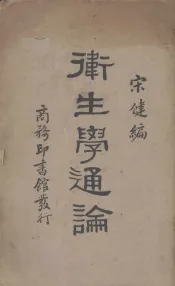 宋健編
衛生學通論
商務印書館發行